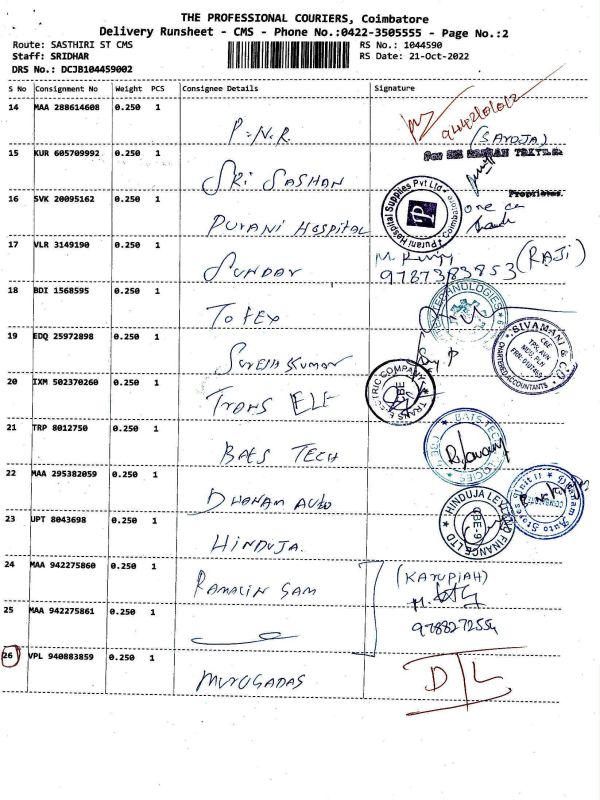 THE PROFESSIONAL COURIERS, Coimbatore
Delivery Runsheet - CMS - Phone No.:0422-3505555 - Page No.:2
Route: SASTHIRI ST CMS RS No.: 1044590
Staff: SRIDHAR RS Date: 21-Oct-2022
DRS No.: DCJB104459002
S No Consignment No Weight PCS Consignee Details Signature
14 MAA 288614608 0.250 1 P.N.R. (SAROJA)
15 KUR 605709992 0.250 1 SRI SASHAN
Proprietor
16 SVK 20095162 0.250 1 PURANI HOSPITAL
Purani Hospital Supplies Pvt Ltd Coimbatore
17 VLR 3149190 0.250 1 SUNDAR 9787383853 (RAJI)
18 BDI 1568595 0.250 1 TOFEX
TECHNOLOGIES
19 EDQ 25972898 0.250 1 SURESH KUMAR
SIVAMANI & CO.
CHARTERED ACCOUNTANTS
CBE
20 IXM 502370260 0.250 1 TRANS ELE
TRANS ELECTRIC COMPANY
CBE
21 TRP 8012750 0.250 1 BATS TECH
BATS TECHNOLOGIES
22 MAA 295382059 0.250 1 DHANAM AUTO
Dhanam Auto Stores
23 UPT 8043698 0.250 1 HINDUJA
HINDUJA LEYLAND FINANCE LTD
CBE-9
24 MAA 942275860 0.250 1 RAMALIN SAM (KARUPIAH)
25 MAA 942275861 0.250 1 9788272554
26 VPL 940883859 0.250 1 MURUGADAS D/L